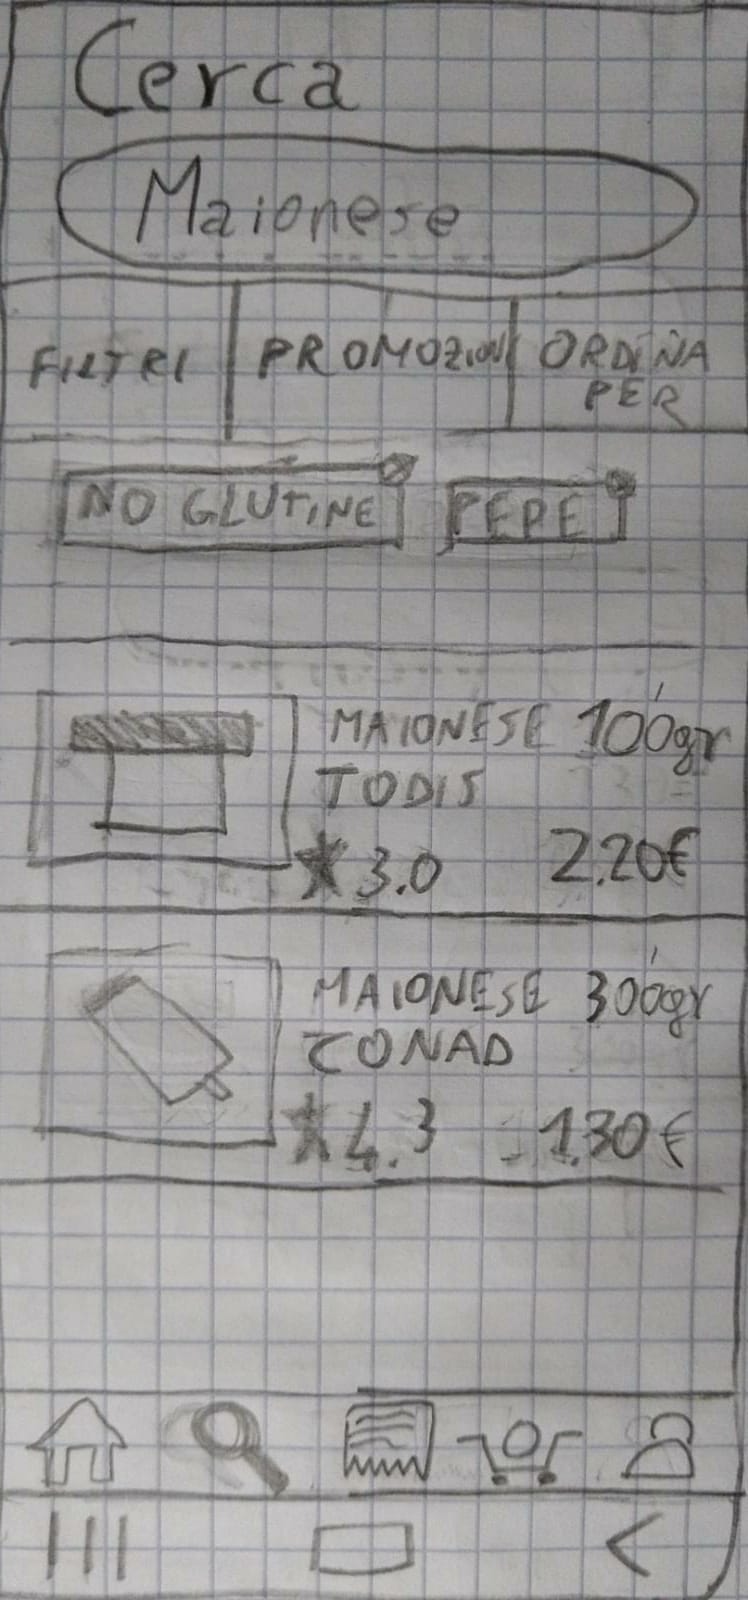 Cerca
Maionese
FILTRI PROMOZIONI ORDINA
PER
NO GLUTINE PEPE
MAIONESE 100gr
TODIS
3.0 2.20€
MAIONESE 300gr
CONAD
4.3 1.30€